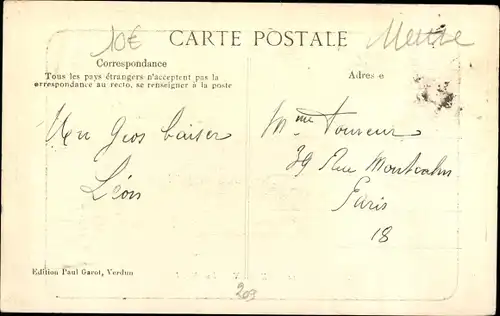 10€
CARTE POSTALE
Meuse
Correspondance
Tous les pays étrangers n'acceptent pas la
correspondance au recto, se renseigner à la poste
Adresse
Un Gros baiser
Léon
Mme Toureur
39 Rue Montcalm
Paris
18
Edition Paul Garot, Verdun
209